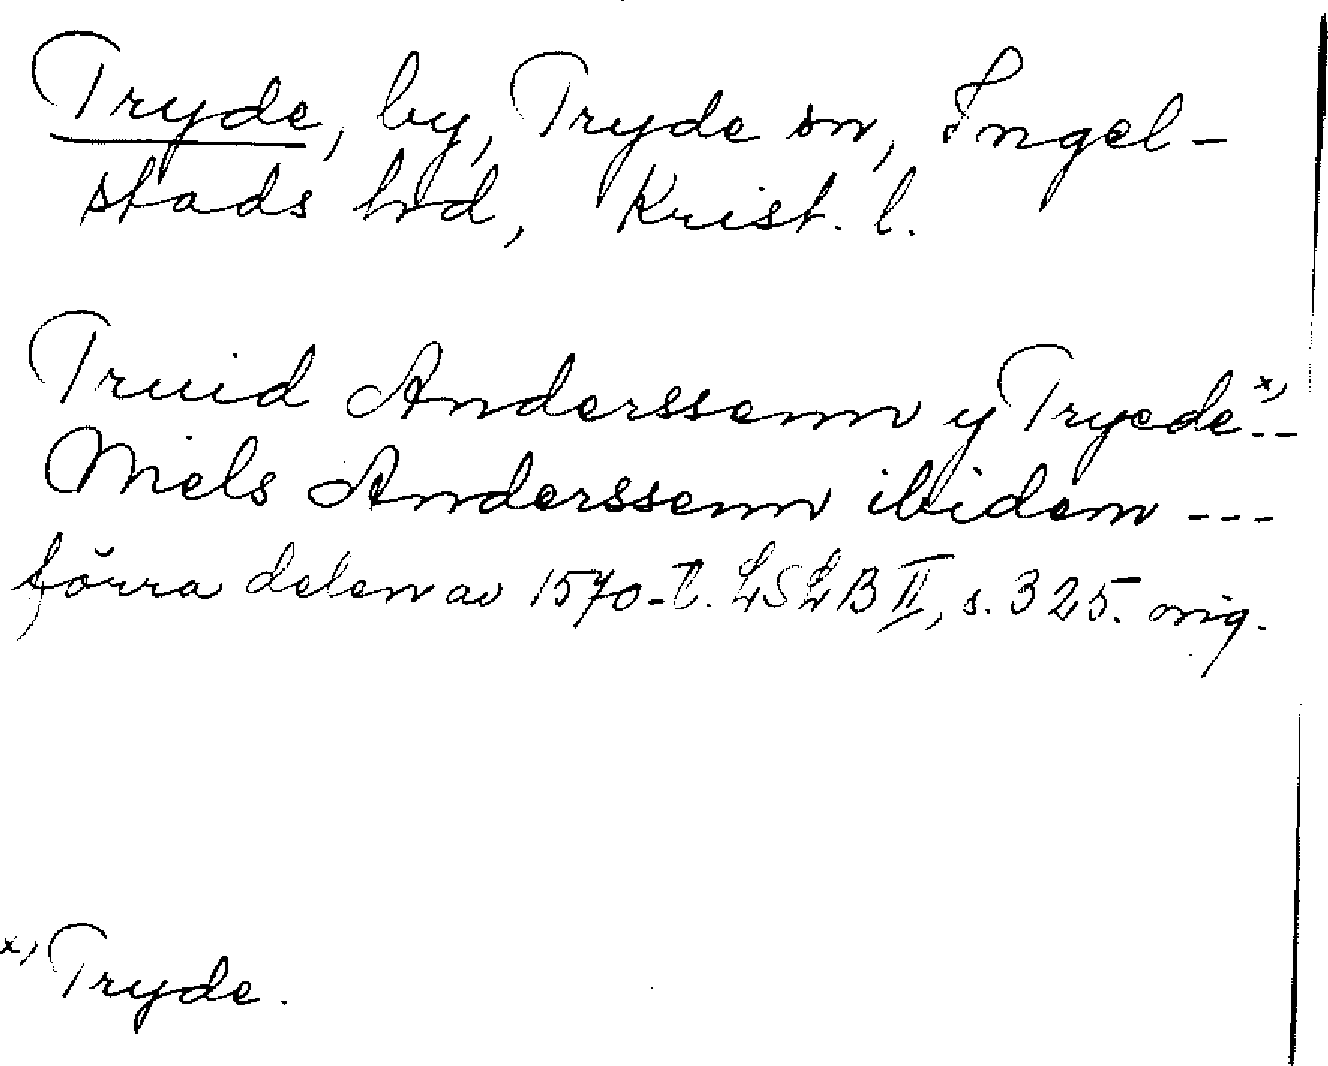 Tryde, by, Tryde sn, Ingel-
stads hrd, Krist. l.
Truid Anderssenn y Tryede x) --
Niels Anderssenn ibidem ---
förra delen av 1570-t. LSLB II, s. 325. orig.
x) Tryde.